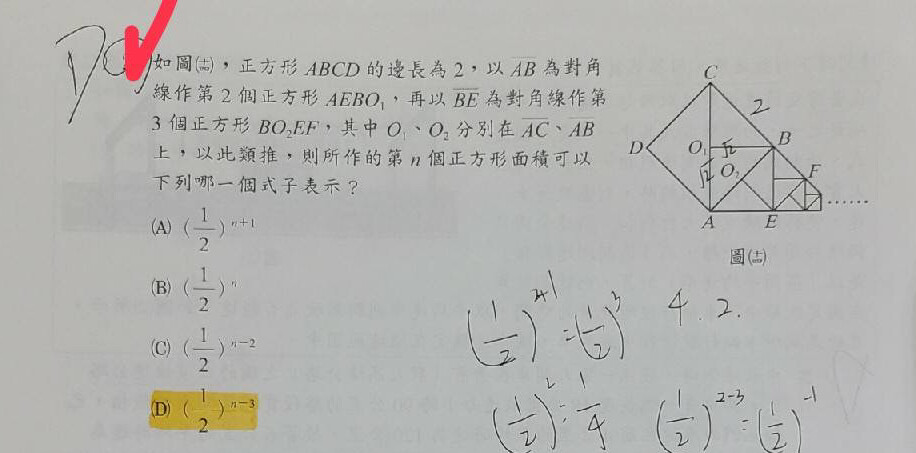 如圖(十四)，正方形 ABCD 的邊長為 2，以 AB 為對角
線作第 2 個正方形 AEBO₁，再以 BE 為對角線作第
3 個正方形 BO₂EF，其中 O₁、O₂ 分別在 AC、AB
上，以此類推，則所作的第 n 個正方形面積可以
下列哪一個式子表示？
(A) (1/2)ⁿ⁺¹
(B) (1/2)ⁿ
(C) (1/2)ⁿ⁻²
(D) (1/2)ⁿ⁻³
C
2
D
O₁
√2
B
√2
O₂
F
A
E
......
圖(十四)
(1/2)²⁺¹ = (1/2)³
4. 2.
(1/2)² = 1/4
(1/2)²⁻³ = (1/2)⁻¹